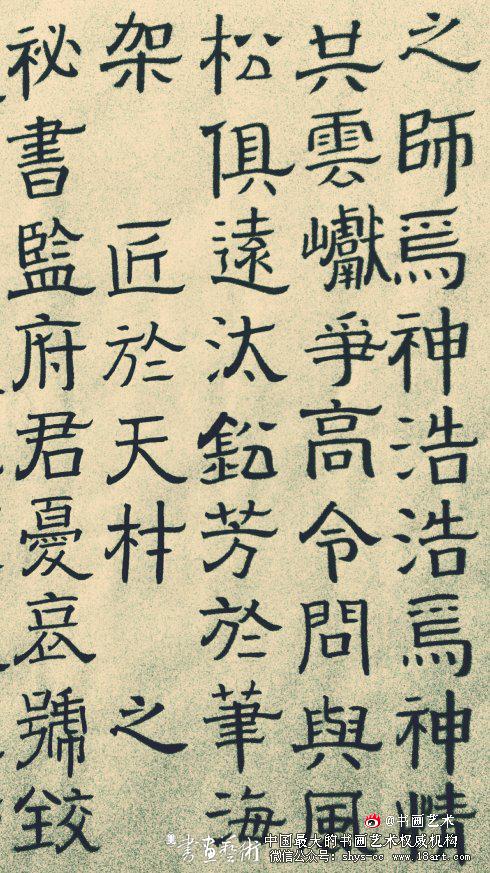 之師焉神浩浩焉神情
共雲巘爭高令問與風
松俱遠汰鉛芳於筆海
架 匠於天材 之
祕書監府君憂哀號
@书画艺术
書畫藝術
中国最大的书画艺术权威机构
微信公众号: shys-cc www.18art.com